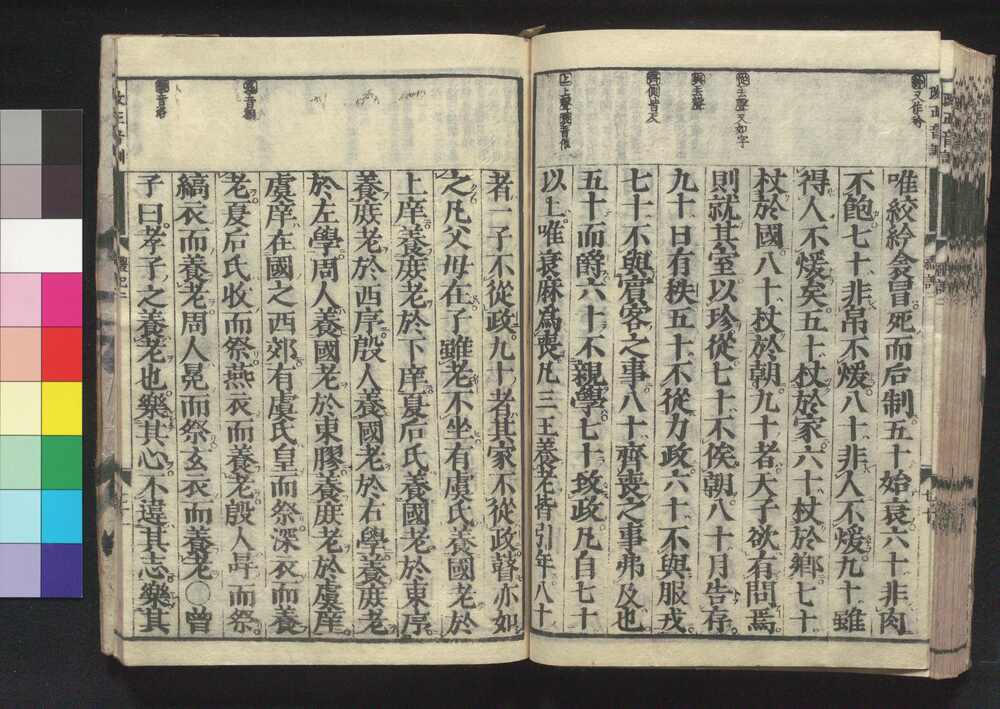 唯絞紟衾冒死而后制五十始衰六十非肉
不飽七十非帛不煖八十非人不煖九十雖
得人不煖矣五十杖於家六十杖於鄉七十
杖於國八十杖於朝九十者天子欲有問焉
則就其室以珍從七十不俟朝八十月告存
九十日有秩五十不從力政六十不與服戎
七十不與賓客之事八十齊喪之事弗及也
五十而爵六十不親學七十致政凡自七十
以上唯衰麻為喪凡三王養老皆引年八十
者一子不從政九十者其家不從政瞽亦如
之凡父母在子雖老不坐有虞氏養國老於
上庠養庶老於下庠夏后氏養國老於東序
養庶老於西序殷人養國老於右學養庶老
於左學周人養國老於東膠養庶老於虞庠
虞庠在國之西郊有虞氏皇而祭深衣而養
老夏后氏收而祭燕衣而養老殷人冔而祭
縞衣而養老周人冕而祭玄衣而養老○曾
子曰孝子之養老也樂其心不違其志樂其
又作衿
從去聲又如字
與去聲
齊側皆反
上上聲衰音催
音洛